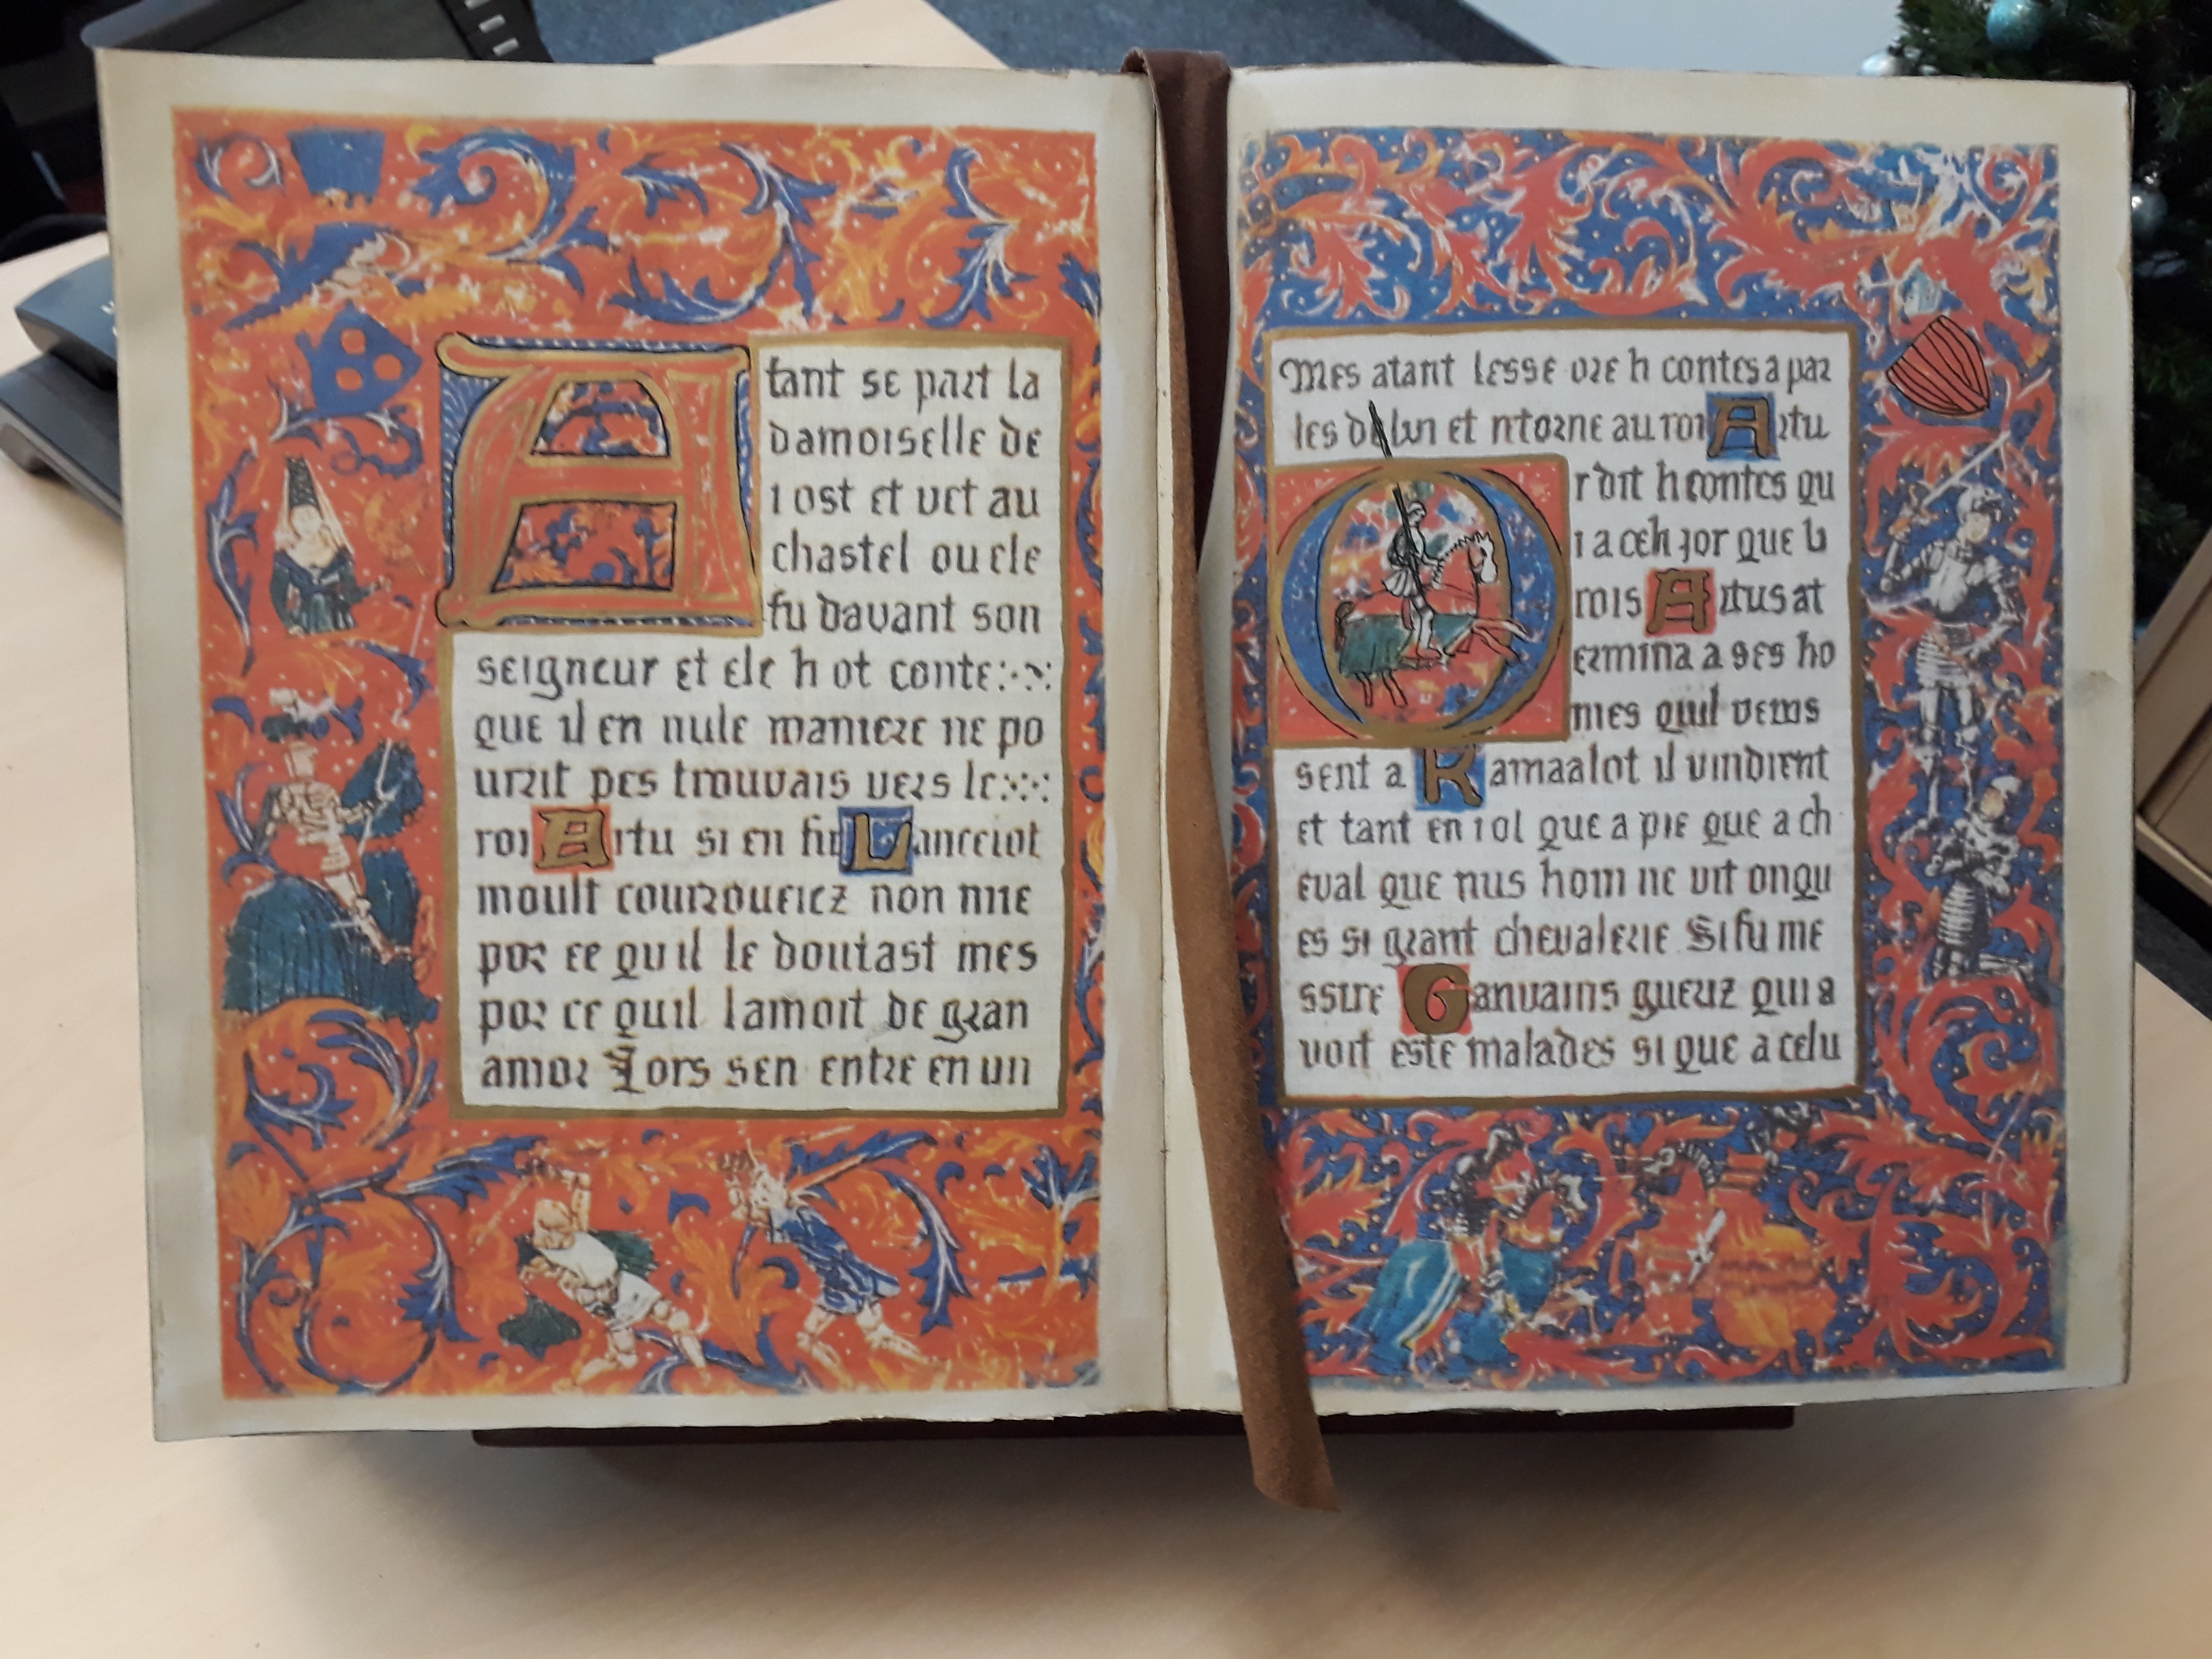 Atant se part la
damoiselle de
l ost et vet au
chastel ou ele
fu davant son
seigneur et ele h ot conte
que il en nule maniere ne po
urrit pes trouvais vers le
roi Artu si en fu Lancelot
moult courroucicz non mie
por ce qu il le doutast mes
por ce quil lamoit de gran
amor Lors sen entre en un
Mes atant lesse ore h contes a par
les et au roi Artu
Or dit h contes qu
i a celi jor que li
rois Artus at
ermina a ses ho
mes quil
sent a Kamaalot il vindrent
et tant en i ot que a pie que a ch
eval que nus hom ne vit onqu
es si grant chevalerie Si fu me
ssire Ganvains queuz qui a
voit este malades si que a celu